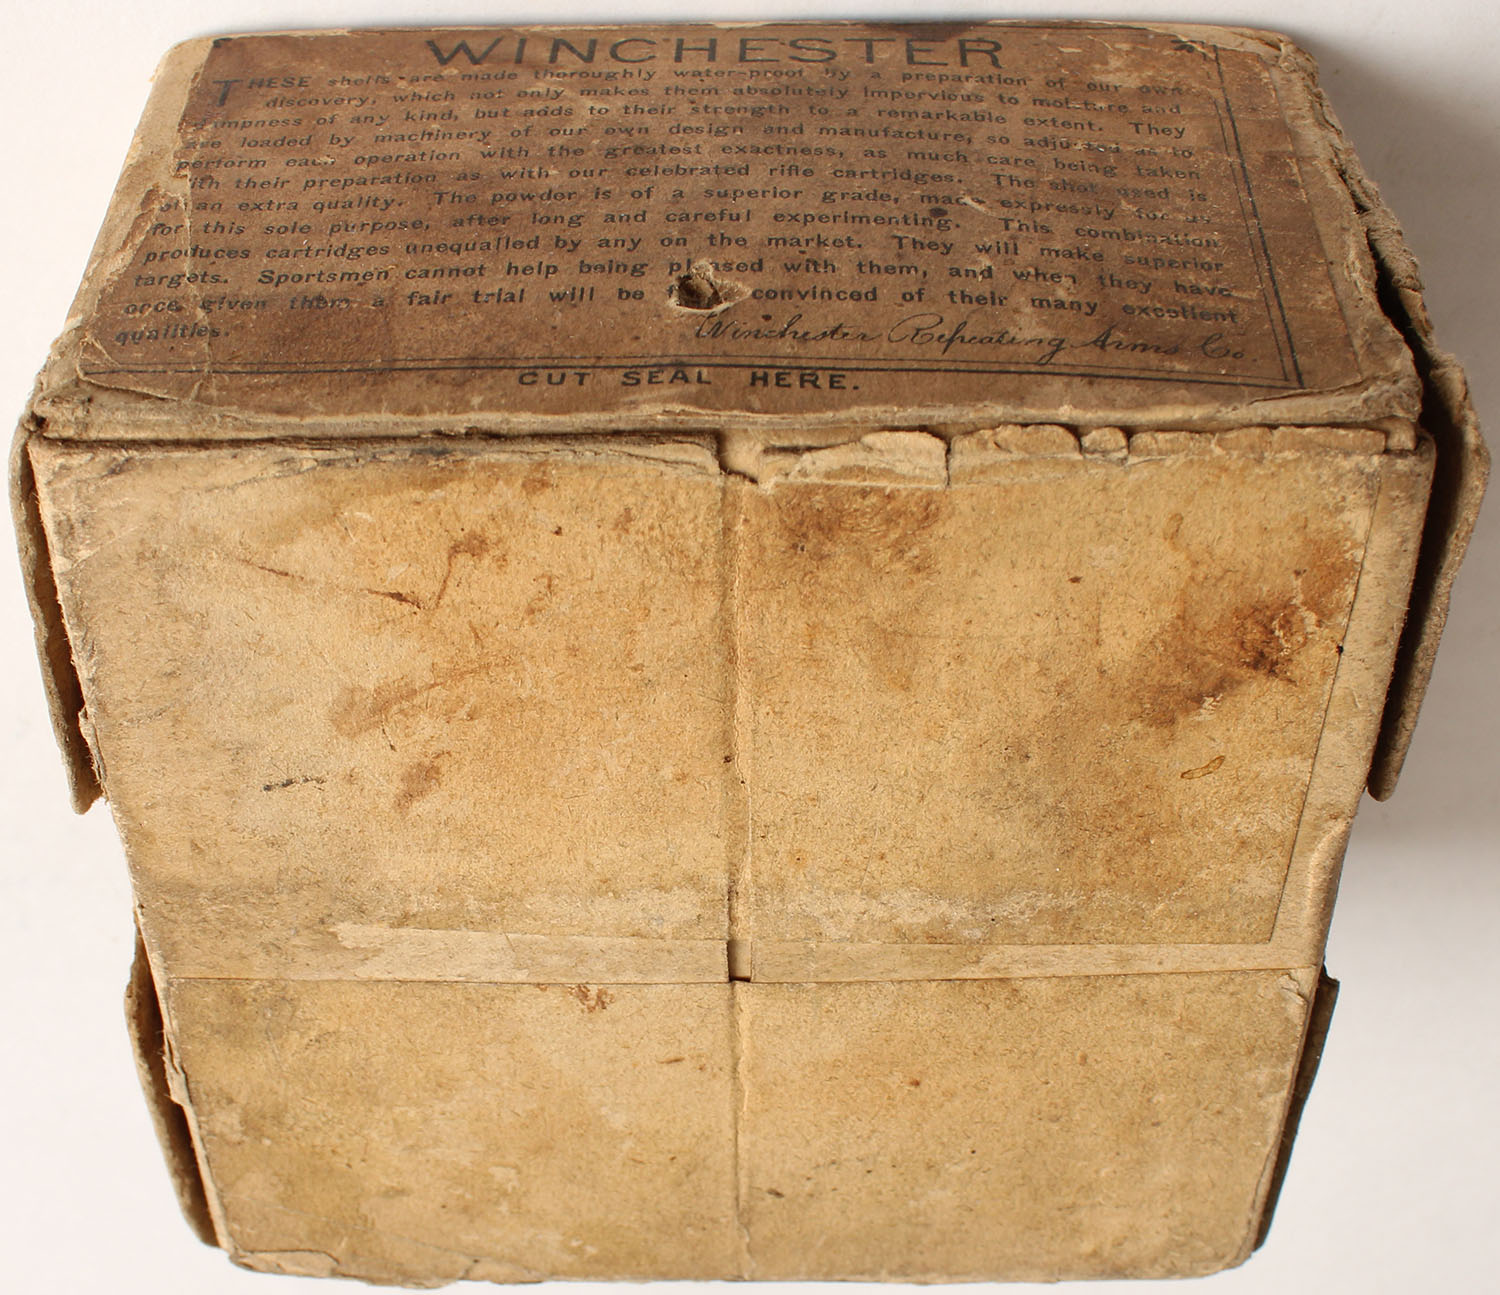 WINCHESTER
THESE shells are made thoroughly water-proof by a preparation of our own
discovery, which not only makes them absolutely impervious to moisture and
dampness of any kind, but adds to their strength to a remarkable extent. They
are loaded by machinery of our own design and manufacture, so adjusted as to
perform each operation with the greatest exactness, as much care being taken
with their preparation as with our celebrated rifle cartridges. The shot used is
of an extra quality. The powder is of a superior grade, made expressly for us
for this sole purpose, after long and careful experimenting. This combination
produces cartridges unequalled by any on the market. They will make superior
targets. Sportsmen cannot help being pleased with them, and when they have
once given them a fair trial will be convinced of their many excellent
qualities.
Winchester Repeating Arms Co.
CUT SEAL HERE.